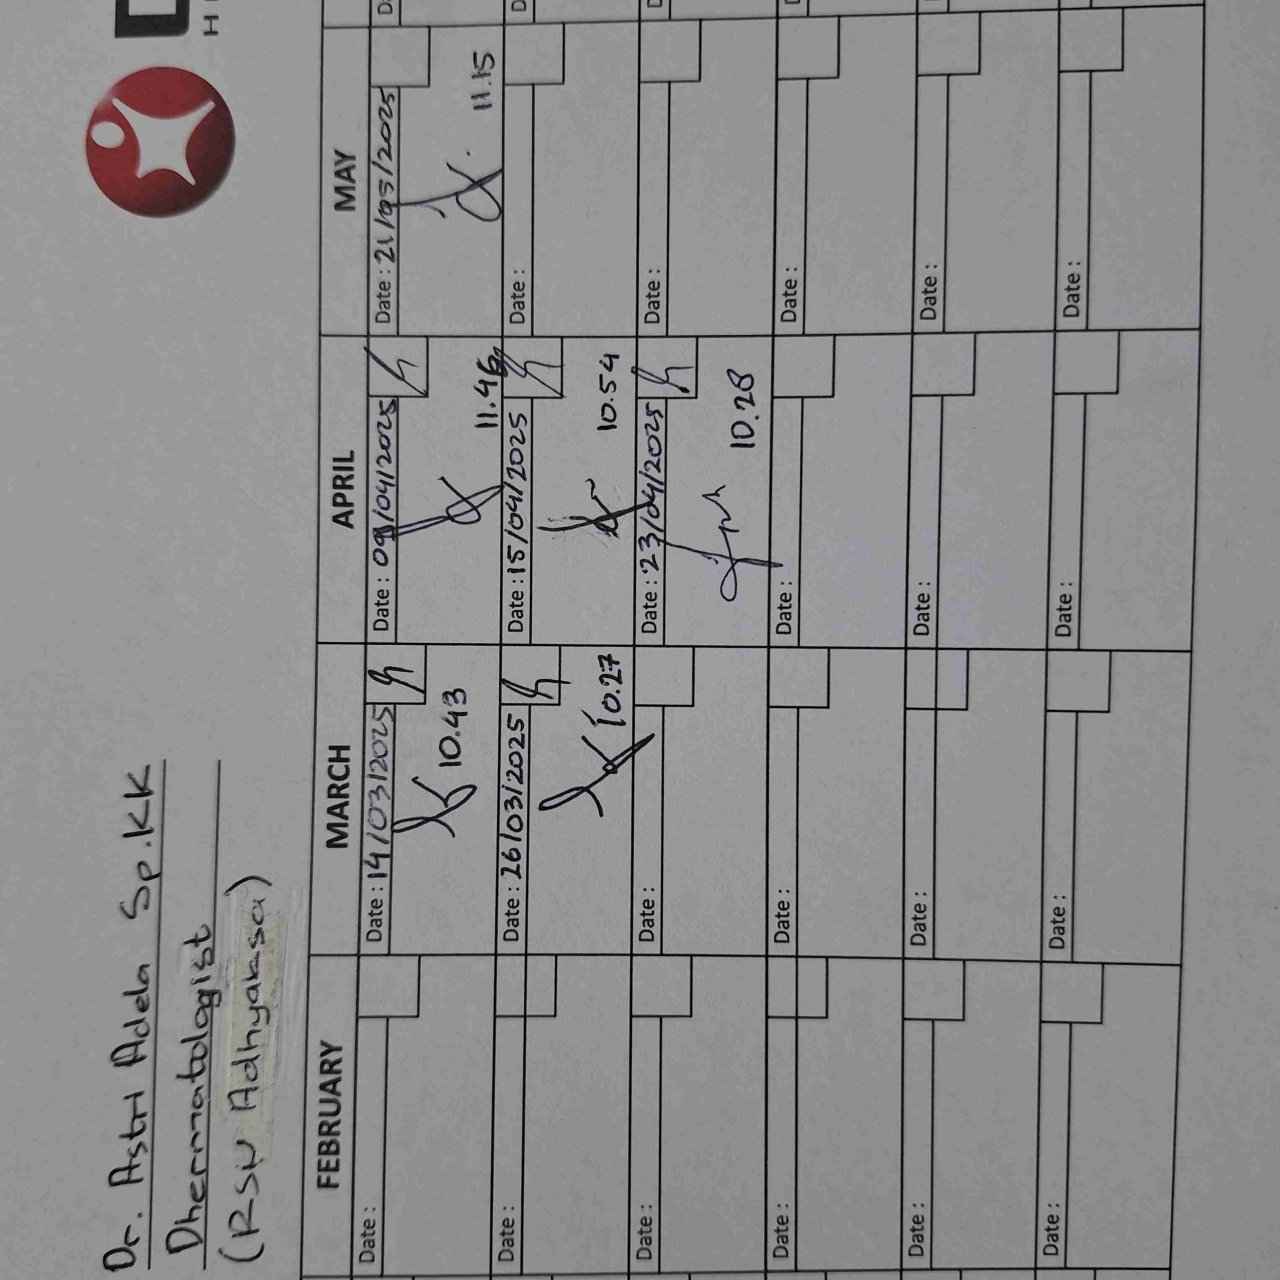 Dr. Astri Adela Sp.KK
Dhermatologist
(RSU Adhyaksa)
FEBRUARY MARCH APRIL MAY
Date : Date : 14/03/2025 Date : 09/04/2025 Date : 21/05/2025
10.43 11.46 11.15
Date : Date : 26/03/2025 Date : 15/04/2025 Date :
10.27 10.54
Date : Date : Date : 23/04/2025 Date :
10.28
Date : Date : Date : Date :
Date : Date : Date : Date :
Date : Date : Date : Date :